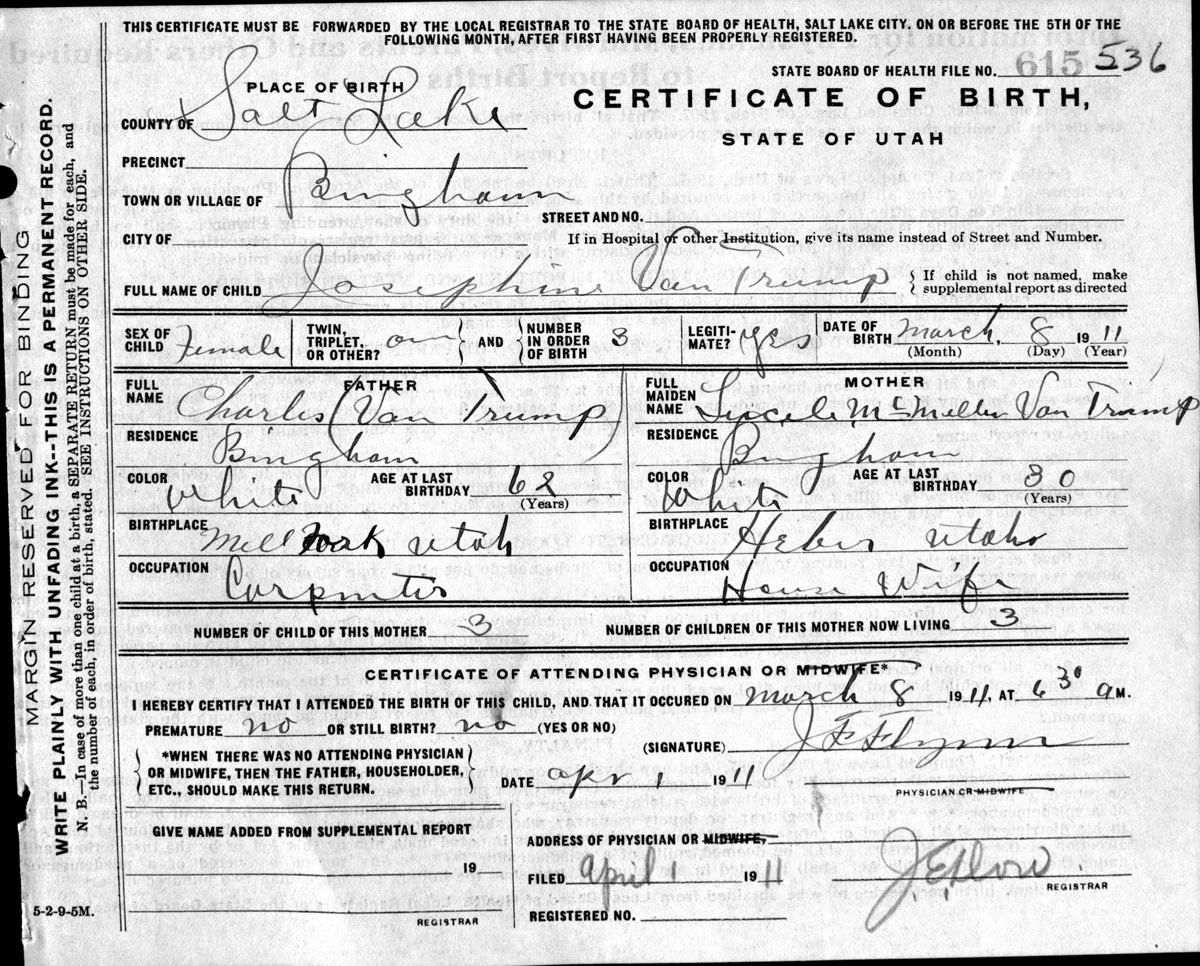 THIS CERTIFICATE MUST BE FORWARDED BY THE LOCAL REGISTRAR TO THE STATE BOARD OF HEALTH, SALT LAKE CITY, ON OR BEFORE THE 5TH OF THE
FOLLOWING MONTH, AFTER FIRST HAVING BEEN PROPERLY REGISTERED.
STATE BOARD OF HEALTH FILE NO. 615 536
PLACE OF BIRTH
CERTIFICATE OF BIRTH,
COUNTY OF Salt Lake
STATE OF UTAH
PRECINCT
TOWN OR VILLAGE OF Bingham
STREET AND NO.
CITY OF
If in Hospital or other Institution, give its name instead of Street and Number.
FULL NAME OF CHILD Josephine Van Trump { If child is not named, make
supplemental report as directed
SEX OF CHILD Female TWIN, TRIPLET, OR OTHER? on } AND { NUMBER IN ORDER OF BIRTH 3 LEGITI- MATE? yes DATE OF BIRTH March, 8 1911
(Month) (Day) (Year)
FATHER
FULL NAME Charles (Van Trump)
RESIDENCE Bingham
COLOR White AGE AT LAST BIRTHDAY 62
(Years)
BIRTHPLACE Mill Utah
OCCUPATION Carpenter
MOTHER
FULL MAIDEN NAME McMillen Van Trump
RESIDENCE Bingham
COLOR White AGE AT LAST BIRTHDAY 30
(Years)
BIRTHPLACE Heber Utah
OCCUPATION House Wife
NUMBER OF CHILD OF THIS MOTHER 3 NUMBER OF CHILDREN OF THIS MOTHER NOW LIVING 3
CERTIFICATE OF ATTENDING PHYSICIAN OR MIDWIFE*
I HEREBY CERTIFY THAT I ATTENDED THE BIRTH OF THIS CHILD, AND THAT IT OCCURED ON March 8 1911, AT 6 30 a M.
PREMATURE no OR STILL BIRTH? no (YES OR NO)
(SIGNATURE) J F Flynn
PHYSICIAN OR MIDWIFE
{ *WHEN THERE WAS NO ATTENDING PHYSICIAN
OR MIDWIFE, THEN THE FATHER, HOUSEHOLDER,
ETC., SHOULD MAKE THIS RETURN. }
DATE Apr 1 1911
GIVE NAME ADDED FROM SUPPLEMENTAL REPORT
19
REGISTRAR
ADDRESS OF PHYSICIAN OR MIDWIFE,
FILED April 1911
REGISTRAR
REGISTERED NO.
5-2-9-5M.
MARGIN RESERVED FOR BINDING
WRITE PLAINLY WITH UNFADING INK--THIS IS A PERMANENT RECORD.
N. B.—In case of more than one child at a birth, a SEPARATE RETURN must be made for each, and
the number of each, in order of birth, stated. SEE INSTRUCTIONS ON OTHER SIDE.